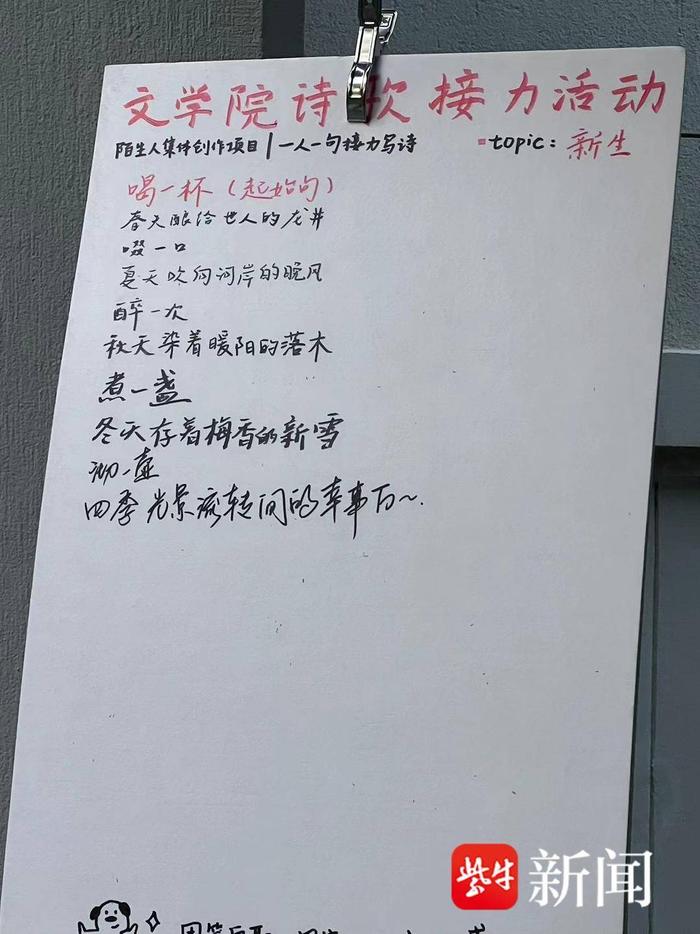 文学院诗歌接力活动
陌生人集体创作项目 | 一人一句接力写诗
topic: 新生
喝一杯(起始句)
春天酿给世人的龙井
啜一口
夏天吹向河岸的晚风
醉一次
秋天染着暖阳的落木
煮一盏
冬天存着梅香的新雪
沏一壶
四季光景流转间的幸事万~.
紫牛新闻